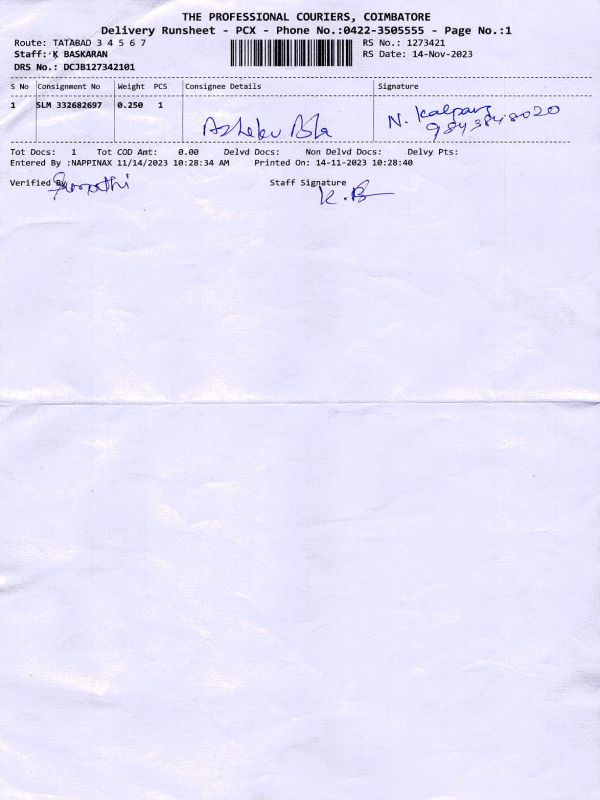 THE PROFESSIONAL COURIERS, COIMBATORE
Delivery Runsheet - PCX - Phone No.:0422-3505555 - Page No.:1
Route: TATABAD 3 4 5 6 7
RS No.: 1273421
Staff: K BASKARAN
RS Date: 14-Nov-2023
DRS No.: DCJB127342101
S No Consignment No Weight PCS Consignee Details Signature
1 SLM 332682697 0.250 1
N. Kalpana
9843848020
Tot Docs: 1 Tot COD Amt: 0.00 Delvd Docs: Non Delvd Docs: Delvy Pts:
Entered By :NAPPINAX 11/14/2023 10:28:34 AM Printed On: 14-11-2023 10:28:40
Verified By Staff Signature
K. B